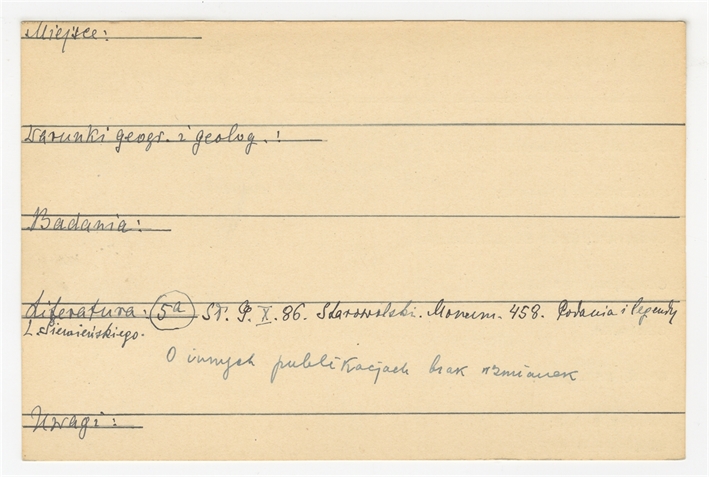 Miejsce:
Warunki geogr. i geolog.:
Badania:
Literatura: 5a St. P. X. 86. Starowolski. Monum. 458. Podania i legendy
L. Siemieńskiego.
O innych publikacjach brak wzmianek
Uwagi: